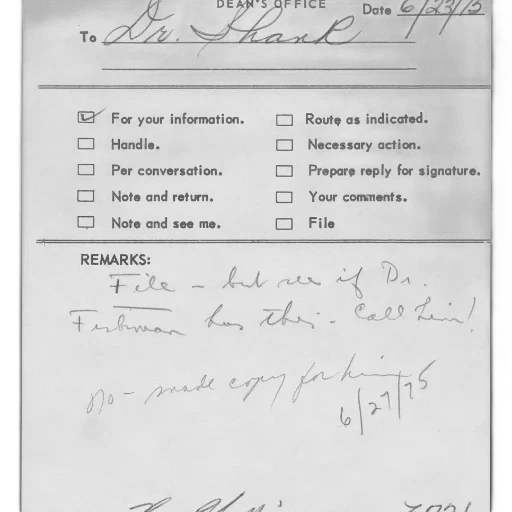 DEAN'S OFFICE
Date 6/23/75
To Dr. Shank
☑ For your information. ☐ Route as indicated.
☐ Handle. ☐ Necessary action.
☐ Per conversation. ☐ Prepare reply for signature.
☐ Note and return. ☐ Your comments.
☐ Note and see me. ☐ File
REMARKS:
File - but see if Dr.
Fishman has this - Call him!
no - made copy for him
6/27/75